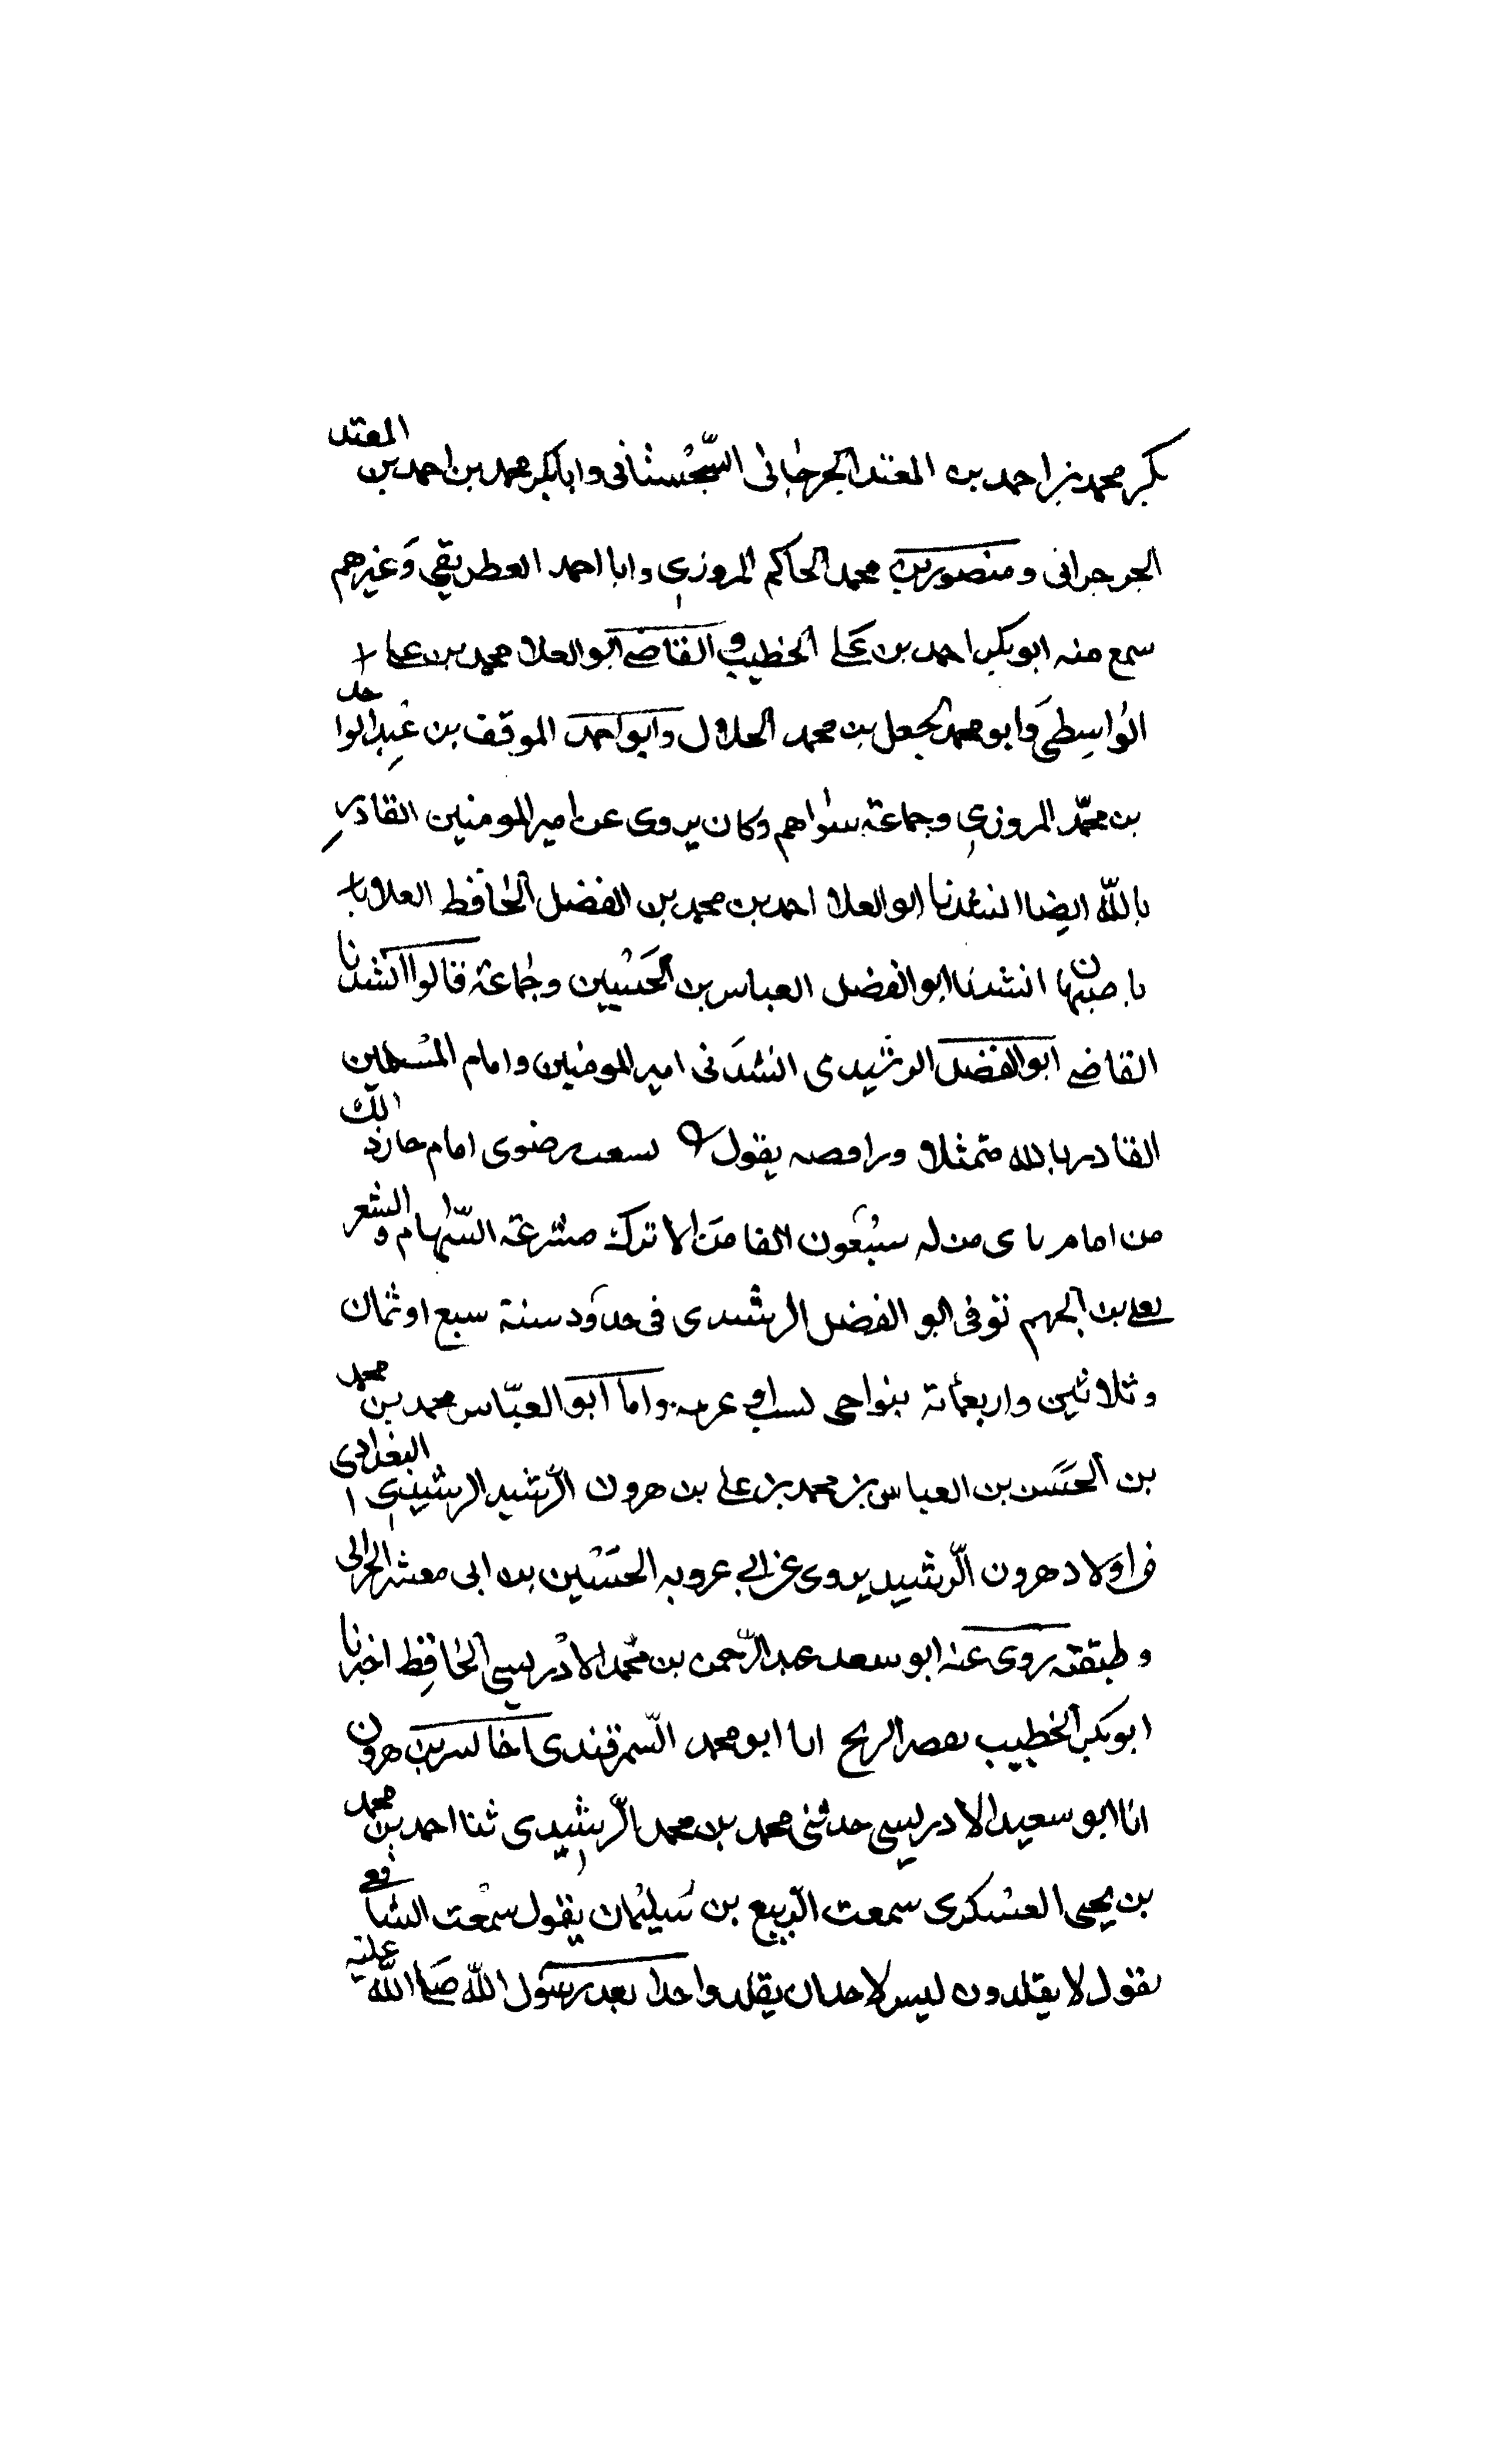 بكر محمد بن احمد بن المفيد الجرجاني السجستاني وابا بكر محمد بن احمد بن المفيد
الجرجراني ومنصور بن محمد الحاكم المروزي وابا احمد الغطريفي وغيرهم
سمع منه ابو بكر احمد بن علي الخطيب والقاضي ابو العلا محمد بن علي
الواسطي وابو محمد الجعل بن محمد الخلال وابو احمد الموفق بن عبد الواحد
بن محمد المروزي وجماعة سواهم وكان يروى عن امير المومنين القادر
بالله ايضا انشدنا ابو العلا احمد بن محمد بن الفضل الحافظ
باصبهان انشدنا ابو الفضل العباس بن الحسين وجماعة قالوا انشدنا
القاضي ابو الفضل الرشيدى انشدنى امير المومنين وامام المسلمين
القادر بالله متمثلا يقول رضوى امام
من امام من له سبعون الفا من الاترك مشرعة السهام والشعر
لعلي بن الجهم توفى ابو الفضل الرشيدى فى حدود سنة سبع اوثمان
وثلاثين واربعمائة بنواحى واما ابو العباس محمد بن محمد
بن الحسن بن العباس بن محمد بن علي بن هرون الرشيد الرشيدي البغدادى
من اولاد هرون الرشيد يروى عن ابي عروبه الحسين بن ابى معشر الحرانى
وطبقته روى عنه ابو سعد عبد الرحمن بن محمد الادريسي الحافظ اخبرنا
ابو بكر الخطيب بقصر الريح انا ابو محمد السمرقندى بن هرون
انا ابو سعيد الادريسي حدثنى محمد بن محمد الرشيدى ثنا احمد بن محمد
بن يحيى العسكرى سمعت الربيع بن سليمان يقول سمعت الشافعي
يقول لا يقلدون ليس لاحد ان يقلد واحدا بعد رسول الله صلى الله عليه